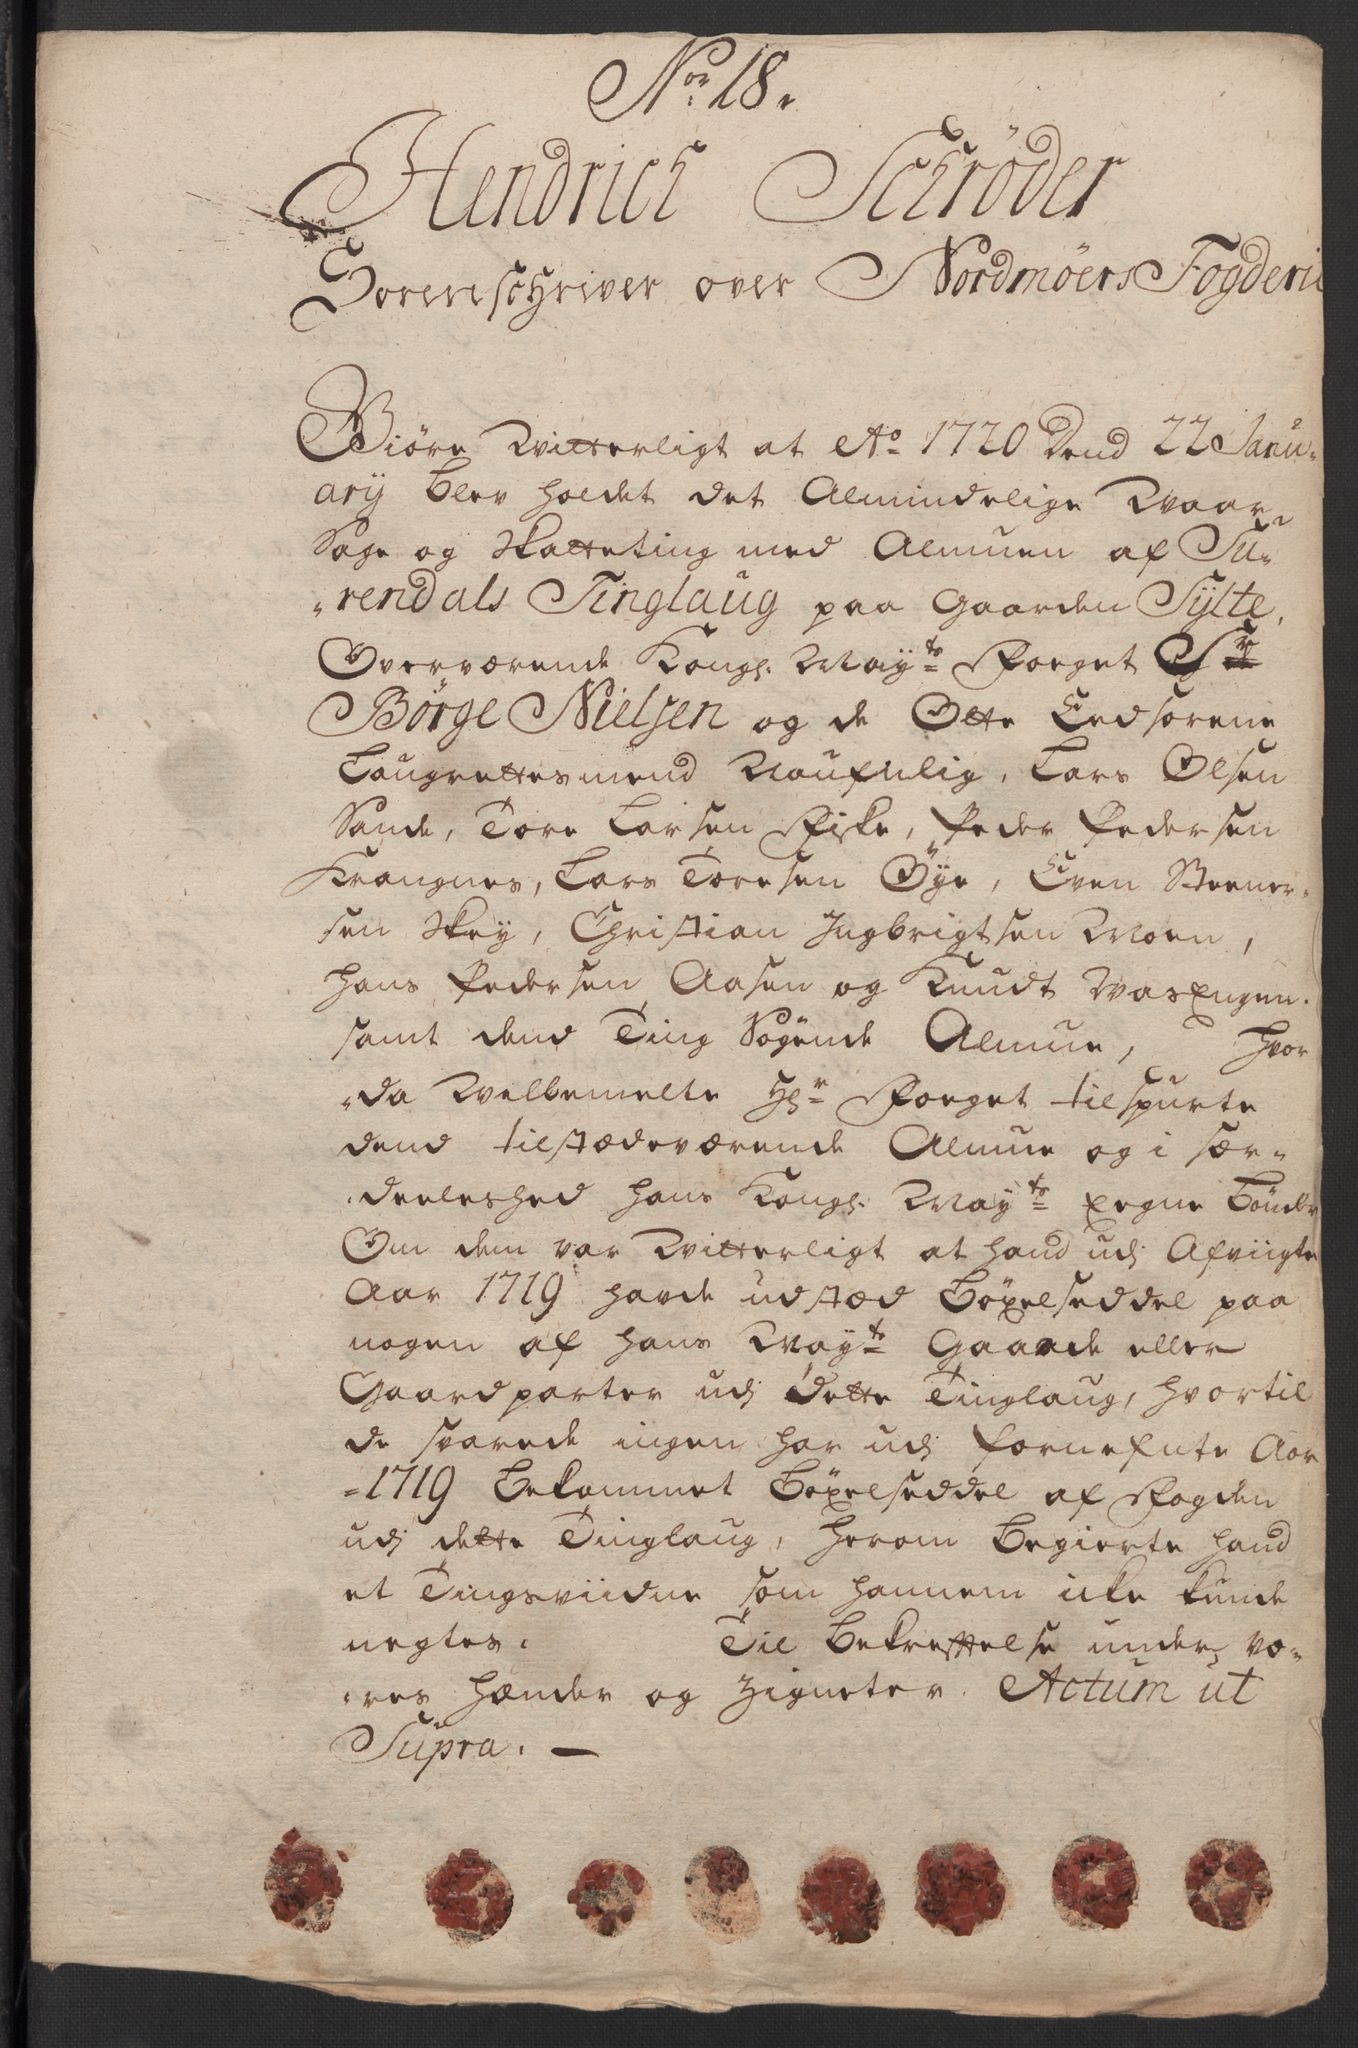 No: 18.
Hendrich Schrøder
Sorenschriver over Nordmøers Fogderie
Giøre Vitterligt at Ao 1720 Dend 22 Janu-
ary blev holdet det Almindelige Waar
Sage og Skatteting med Almuen af Su-
-rendals Tinglaug paa Gaarden Sylte,
Overværende Kongl: Mayts Foeget Sr
Børge Nielsen og de Otte Eedsorene
Laugrettesmend Naufnlig, Lars Olsen
Sande, Tore Larsen Fiske, Peder Pedersen
Krangnes, Lars Toresen Øye, Even Steener-
sen Skey, Christian Ingbrigtsen Moen,
Hans Pedersen Aasen og Knudt Wasengen.
samt dend Ting Søgende Almue, hvor
-da Velbemelte Hr Foeget tilspurte
dend tilstædeværende Almue og i sær-
-deeleshed hans Kongl: Mayts Eegne Bønder
Om dem var Vitterligt at hand udj Afvigte
Aar 1719 havde udstæd Böxelseddel paa
nogen af hans Mayts Gaarde eller
Gaardparter udj dette Tinglaug, hvortil
de svarede ingen har udj fornefnte Aar
-1719 bekommet Böxelseddel af Fogden
udj dette Tinglaug, herom begierte hand
et Tingsviidne som hannem icke kunde
negtes. Til bekreftelse under vo-
-res Hænder og Zigneter. Actum ut
Supra. —